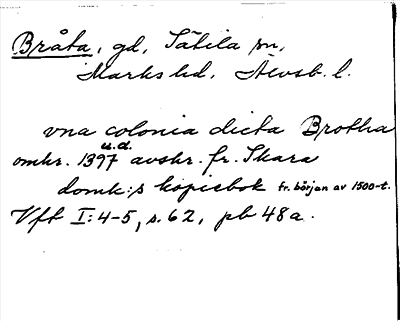 Bråta, gd, Sätila sn,
Marks hd, Älvsb. l.
vna colonia dicta Brotha
u.d.
omkr. 1397 avskr. fr. Skara
domk:s kopiebok fr. början av 1500-t.
Vfb I:4-5, s. 62, pb 48a.